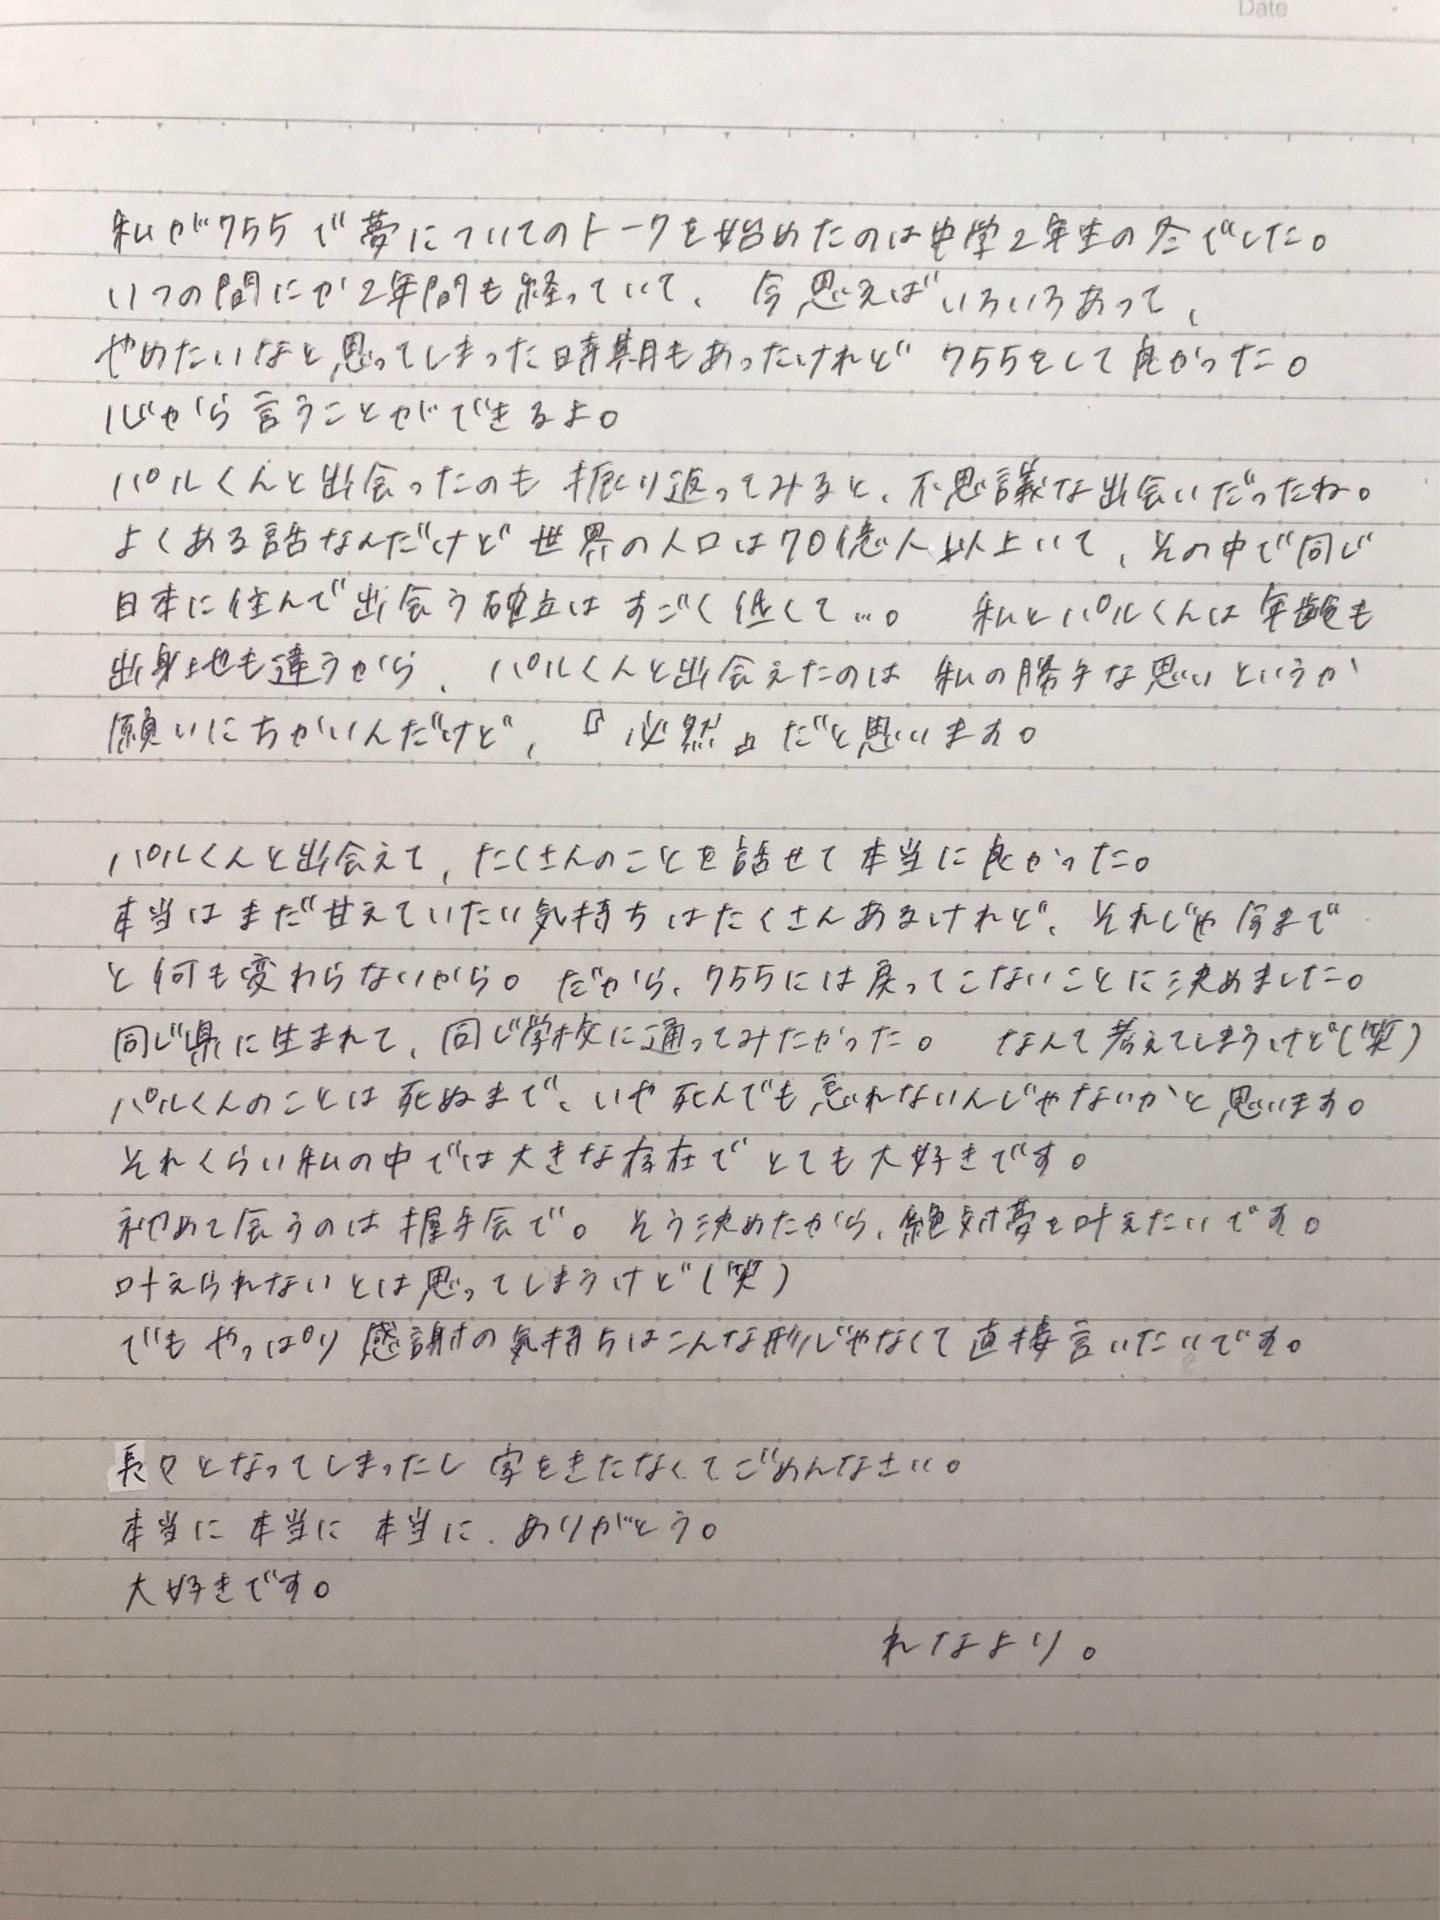 Date
私が755で夢についてのトークを始めたのは中学2年生の冬でした。
いつの間にか2年間も経っていて、今思えばいろいろあって、
やめたいなと思ってしまった時期もあったけれど755をして良かった。
心から言うことができるよ。
パルくんと出会ったのも振り返ってみると、不思議な出会いだったね。
よくある話なんだけど世界の人口は70億人以上いて、その中で同じ
日本に住んで出会う確立はすごく低くて…。 私とパルくんは年齢も
出身地も違うから、パルくんと出会えたのは私の勝手な思いというか
願いにちかいんだけど、『必然』だと思います。
パルくんと出会えて、たくさんのことを話せて本当に良かった。
本当はまだ甘えていたい気持ちはたくさんあるけれど、それじゃ今まで
と何も変わらないから。だから、755には戻ってこないことに決めました。
同じ県に生まれて、同じ学校に通ってみたかった。 なんて考えてしまうけど(笑)
パルくんのことは死ぬまで、いや死んでも忘れないんじゃないかと思います。
それくらい私の中では大きな存在でとても大好きです。
初めて会うのは握手会で。そう決めたから、絶対夢を叶えたいです。
叶えられないとは思ってしまうけど(笑)
でもやっぱり感謝の気持ちはこんな形じゃなくて直接言いたいです。
長々となってしまったし字をきたなくてごめんなさい。
本当に本当に本当に、ありがとう。
大好きです。
れなより。